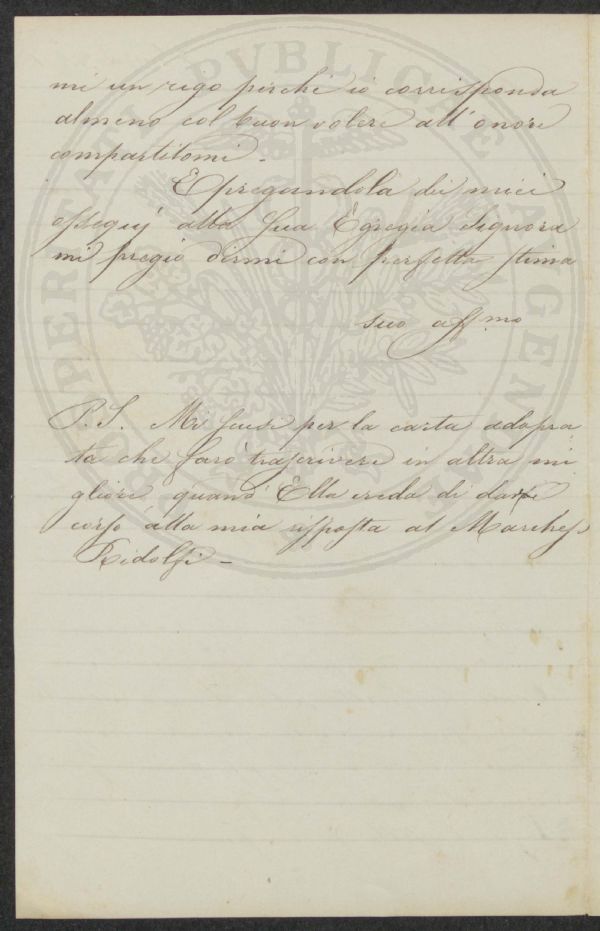 mi un rigo perchè io corrisponda
almeno col buon volere all'onore
compartitomi.
E pregandola dei miei
ossequj alla Sua Egregia Signora
mi pregio dirmi con perfetta stima
suo aff.mo
P.S. Mi scusi per la carta adopra
ta che farò trascrivere in altra mi
gliore quand'Ella creda di dare
corso alla mia risposta al Marchese
Ridolfi -